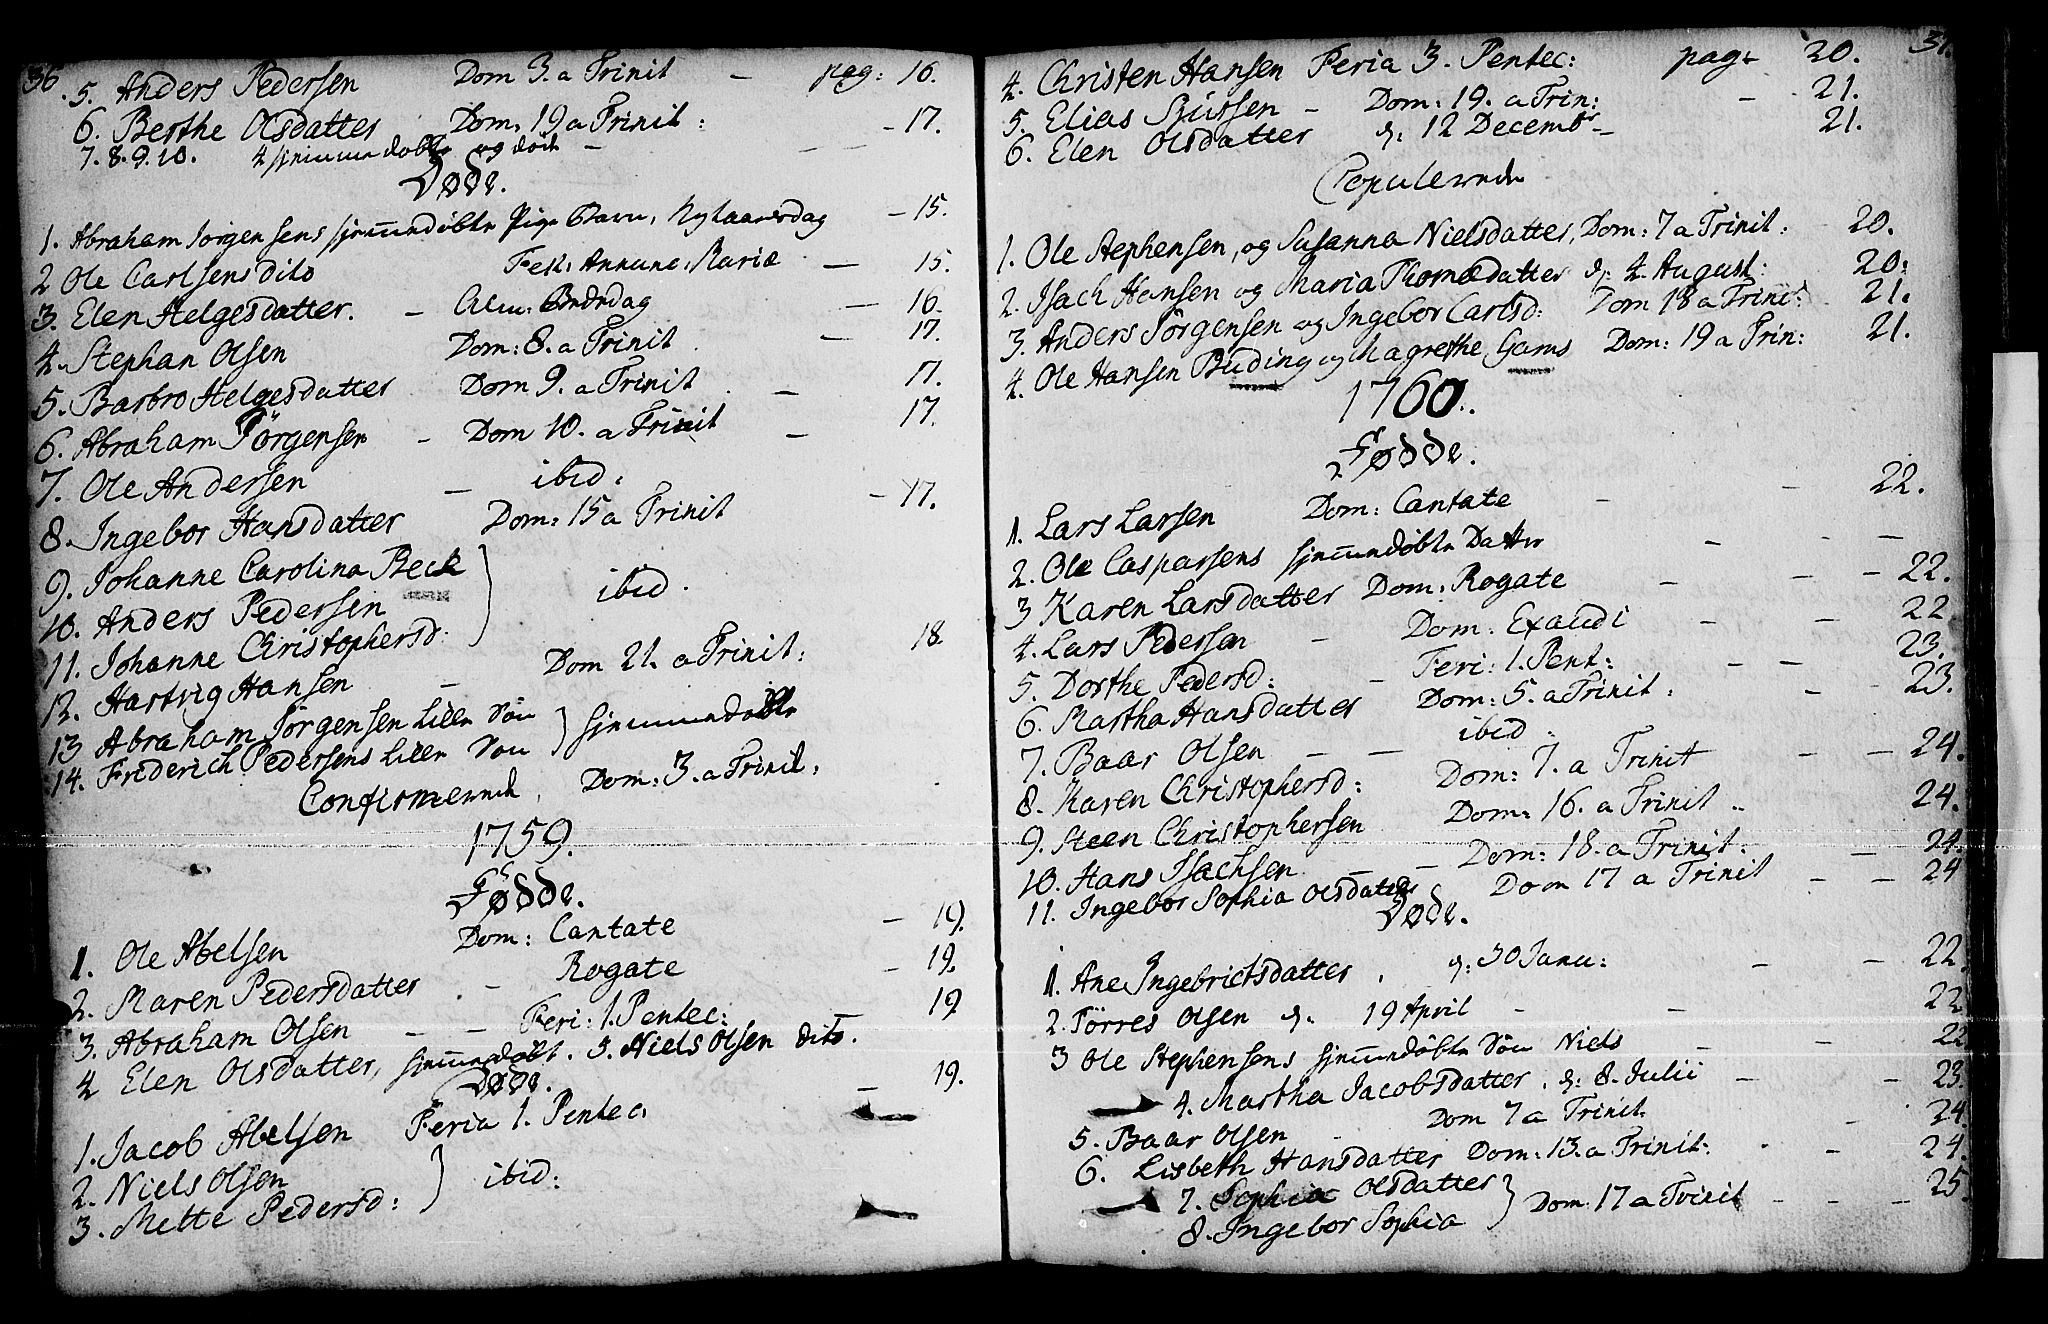 36.
5. Anders Pedersen Dom 3. a Trinit – pag: 16.
6. Berthe Olsdatter Dom: 19 a Trinit: – 17.
7. 8. 9. 10. 4 hjemmedøbte og døde – – –
Døde.
1. Abraham Jørgensens hjemmedøbte Pige Barn, Nytaarsdag – 15.
2 Ole Carlsens dito Fest: Annunc: Mariæ – 15.
3. Elen Helgesdatter. – Alm: Bededag – 16.
4. Stephan Olsen Dom: 8. a Trinit – 17.
5. Barbro Helgesdatter Dom 9. a Trinit – 17.
6. Abraham Jörgensen – Dom 10. a Trinit – 17.
7. Ole Andersen – ibid:
8. Ingebor Hansdatter Dom: 15 a Trinit – 17.
9. Johanne Carolina Beck
10. Anders Pedersen ibid.
11. Johanne Christophersd:
12. Hartvig Hansen – Dom 21. a Trinit: 18.
13 Abraham Jörgensen lille Søn
14. Friderich Pedersens lille Søn } hjemmedøbte
Confirmerede, Dom: 3. a Trinit.
1759.
Fødde.
1. Ole Abelsen Dom: Cantate – 19.
2. Maren Pedersdatter. – Rogate – 19.
3. Abraham Olsen – – Feri: 1. Pentec: – 19.
4 Elen Olsdatter, hjemmedøbt. 5. Niels Olsen dito.
Døde.
1. Jacob Abelsen Feria 1. Pentec. – 19.
2. Niels Olsen
3. Mette Pedersd: } ibid:
37.
4. Christen Hansen Feria 3. Pentec: pag: 20.
5. Elias Sjursen – Dom: 19. a Trin: – 21.
6. Elen Olsdatter d: 12 Decembr – 21.
Copulerede
1. Ole Stephensen, og Susanna Nielsdatter, Dom: 7 a Trinit: 20.
2. Isach Hansen og Maria Thomædatter d: 4. August: 20:
3. Anders Jörgensen og Ingebor Carlsd: Dom 18 a Trinit: 21.
4. Ole Hansen Buding og Magrethe Gams Dom: 19 a Trin: 21.
1760.
Fødde.
1. Lars Larsen Dom: Cantate – – 22.
2. Ole Caspersens hjemmedøbte Datter – – –
3 Karen Larsdatter Dom: Rogate – – – 22.
4. Lars Pedersen – Dom: Exaudi – – 22
5. Dorthe Pedersd: – Feri: 1. Pent: – – 23.
6. Martha Hansdatter Dom: 5. a Trinit: – 23.
7. Baar Olsen – – ibid.
8. Karen Christophersd: Dom: 7. a Trinit – – 24.
9. Steen Christophersen Dom: 16. a Trinit 24.
10. Hans Isachsen – – Dom: 18. a Trinit: – 24.
11. Ingebor Sophia Olsdatter Dom 17 a Trinit – – 24
Døde.
1. Ane Ingebrichtsdatter, d: 30 Janu: – – 22.
2. Törres Olsen d: 19 April – – 22.
3 Ole Stephensens hjemmedøbte Søn Niels – – 22
4. Martha Jacobsdatter, d: 8. Julii – – 23.
5. Baar Olsen – Dom 7 a Trinit. – 24.
6. Lisbeth Hansdatter Dom: 13. a Trinit: – 24.
7. Sophia Olsdatter
8. Ingebor Sophia } Dom: 17 a Trinit – – – 25.